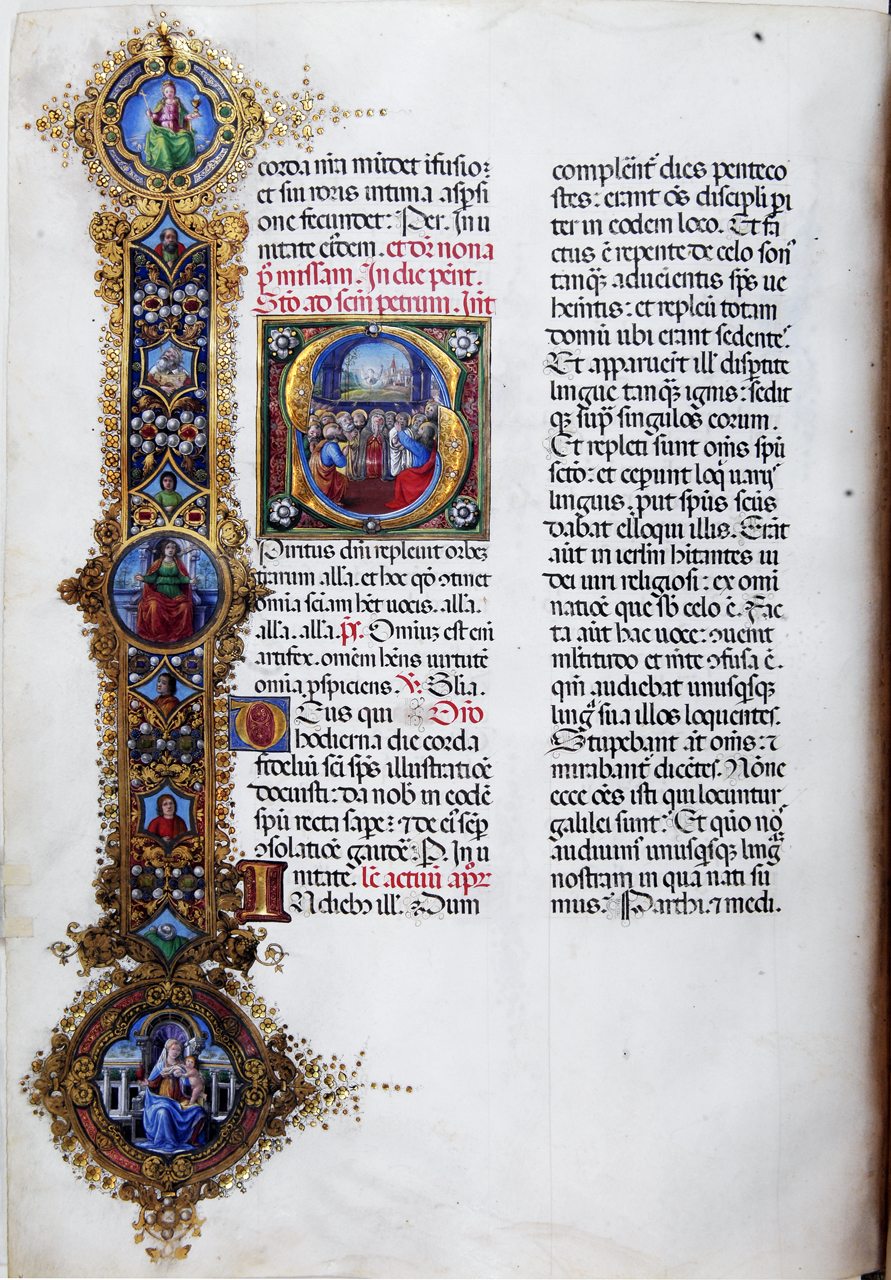 corda nr̄a mūdet ifusio:
et sui roris intima asp̄si
one fecundet: Per. In u
nitate ei᷒dem. et dr̄ non a
p̄ missam. In die pent.
Stō. ad scm̄ petrum. Int̄
Spiritus dn̄i repleuit orbez
terrarum all'a. et hoc qō ꝯtinet
om̄ia sciam h̄et uocis. all'a.
all'a. all'a. ps̄. Omniuꝫ est eni
artifex. omēm hēns uirtutē
om̄ia ꝓspiciens. V. Glia.
Deus qui Orō
hodierna die corda
fideliū sc̄i sp̄s illustratiōe
docuisti: da nob' in eodē
sp̄u recta sape: ⁊ de ei' sēp
ꝯsolatiōe gaudē: P. In u
nitate. lc̄ actuū apꝉoꝝ
IN dieb' ill'. Dum
compler̄ent' dies penteco
stes: erant oēs discipli pi
ter in eodem loco. Et fa
ctus ē repente de celo son'
tanqꝫ aduenientis sp̄s ue
hem̄tis: et repleū totam
domū ubi erant sedente'.
Et apparuer̄t ill' disp̄tite
lingue tanqꝫ ignis: sedit
qꝫ sup̄ singulos eorum.
Et repleti sunt om̄s sp̄u
sctō: et ceperunt loq̄ uarijˢ
linguis. put sp̄us sc̄us
dabat elloqui illis. Erāt
aūt in ierl̄m hītantes iu
dei uiri religiosi: ex omi
natiōe que sb̄ celo ē. Fac
ta aūt hac uoce: ꝯuenit
ml̄titudo et m̄te ꝯfusa ē.
qm̄ audiebat unusqˢqꝫ
ling̃ sua illos loquentes.
Stupebant aūt om̄s: ⁊
mirabant' dicētes. Nōne
ecce oēs isti qui locuntur
galilei sunt: Et quō noˢ
audiuim' unusqˢqꝫ ling̃
nostram in qua nati su
mus: Parthi. ⁊ medi.